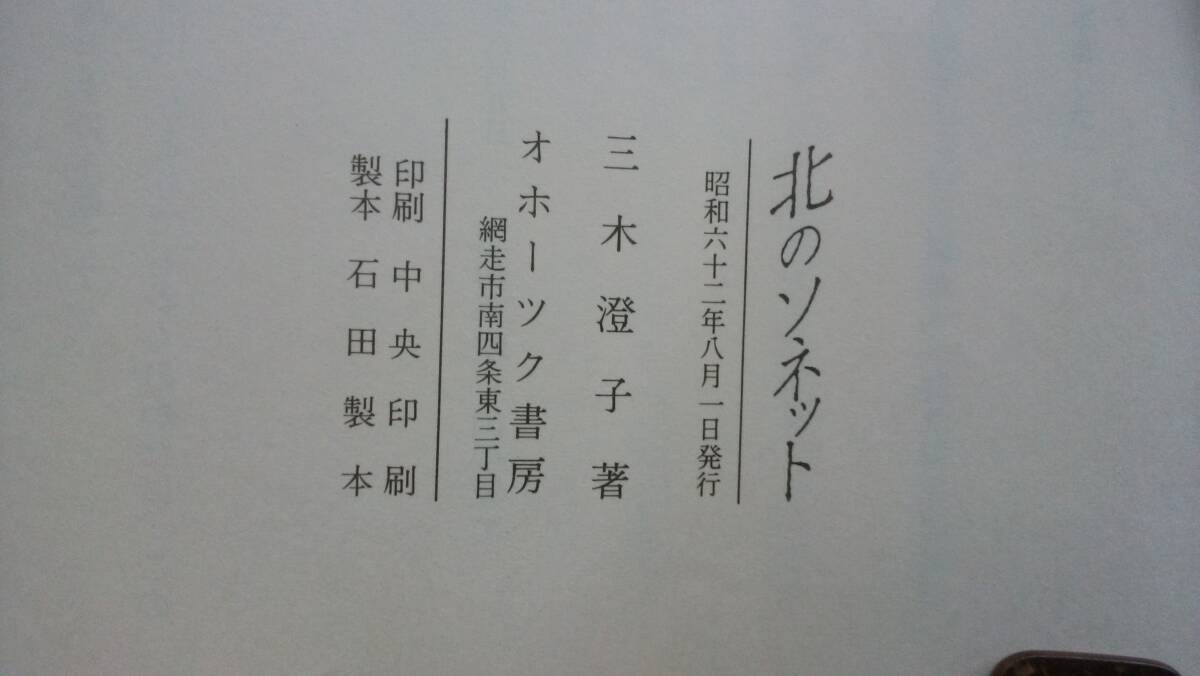 北のソネット
昭和六十二年八月一日発行
三木澄子著
オホーツク書房
網走市南四条東三丁目
印刷 中央印刷
製本 石田製本